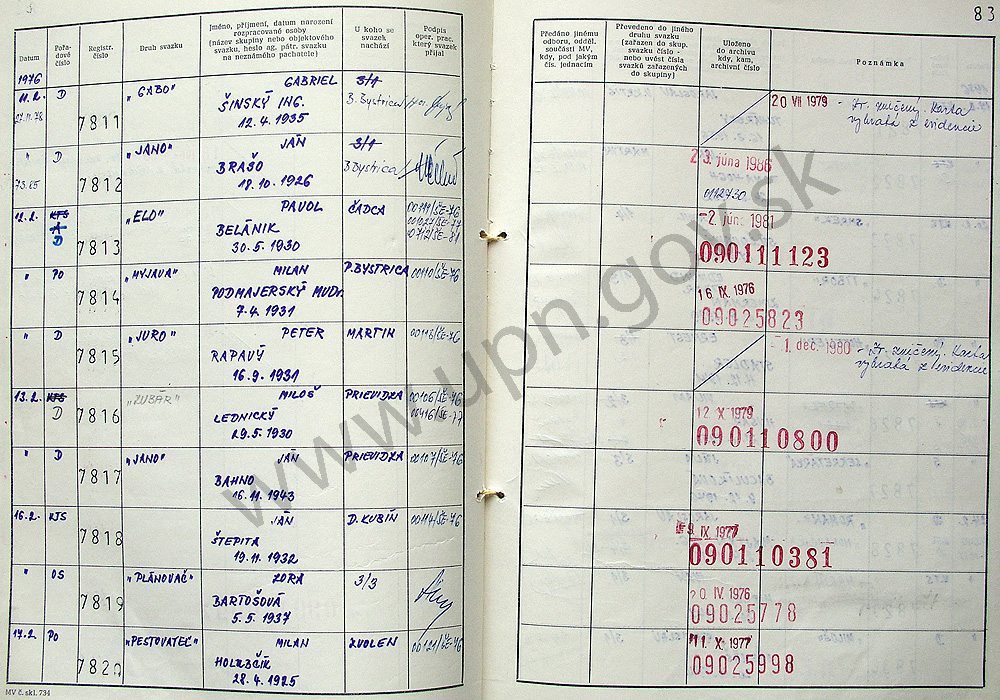 83
Datum
Pořadové číslo
Registr. číslo
Druh svazku
Jméno, příjmení, datum narození
rozpracované osoby
(název skupiny nebo objektového
svazku, heslo ag. pátr. svazku
na neznámého pachatele)
U koho se
svazek
nachází
Podpis
oper. prac.
který svazek
přijal
Předáno jinému
odboru, odděl.
součásti MV,
kdy, pod jakým
čís. jednacím
Převedeno do jiného
druhu svazku
(zařazen do skup.
svazku číslo -
nebo uvést čísla
svazků zařazených
do skupiny)
Uloženo
do archivu
kdy, kam,
archivní číslo
Poznámka
1976
11.2. D 7811 „GABO" GABRIEL 3/1
ŠINSKÝ ING. B. Bystrica
12.4.1935
20 VII 1979 - Zr. zničený. Karta
vybratá z evidencie
" D 7812 „JANO" JÁN 3/1
BRAŠO B Bystrica
18.10.1926
23. júna 1986
12.2. KTS A D 7813 „ELO" PAVOL ČADCA
BELÁNIK
30.5.1930
-2. jún. 1981
090111123
" PO 7814 „MYJAVA" MILAN P. BYSTRICA 00110/ŠE-76
PODMAJERSKÝ MUDr.
7.4.1931
16 IX. 1976
09025823
" D 7815 „JURO" PETER MARTIN
RAPAVÝ
16.9.1931
-1. dec. 1980 - Zr. zničený. Karta
vybratá z evidencie
13.2. KTS D 7816 „ZUBÁR" MILOŠ PRIEVIDZA 00106/ŠE-76
LEDNICKÝ 00416/ŠE-77
29.5.1930
12 X 1979
090110800
" D 7817 „JANO" JÁN PRIEVIDZA 00107/ŠE-76
BAHNO
16.11.1943
16.2. KTS 7818 JÁN D. KUBÍN 00114/ŠE-76
ŠTEPITA
19.11.1932
9. IX. 1977
090110381
" OS 7819 „PLÁNOVAČ" ZORA 3/3
BARTOŠOVÁ
5.5.1937
20. IV. 1976
09025778
17.2. PO 7820 „PESTOVATEĽ" MILAN ZVOLEN 00121/ŠE-76
HOLUBČÍK
28.4.1925
11 X. 1977
09025998
MV č. skl. 734
www.upn.gov.sk